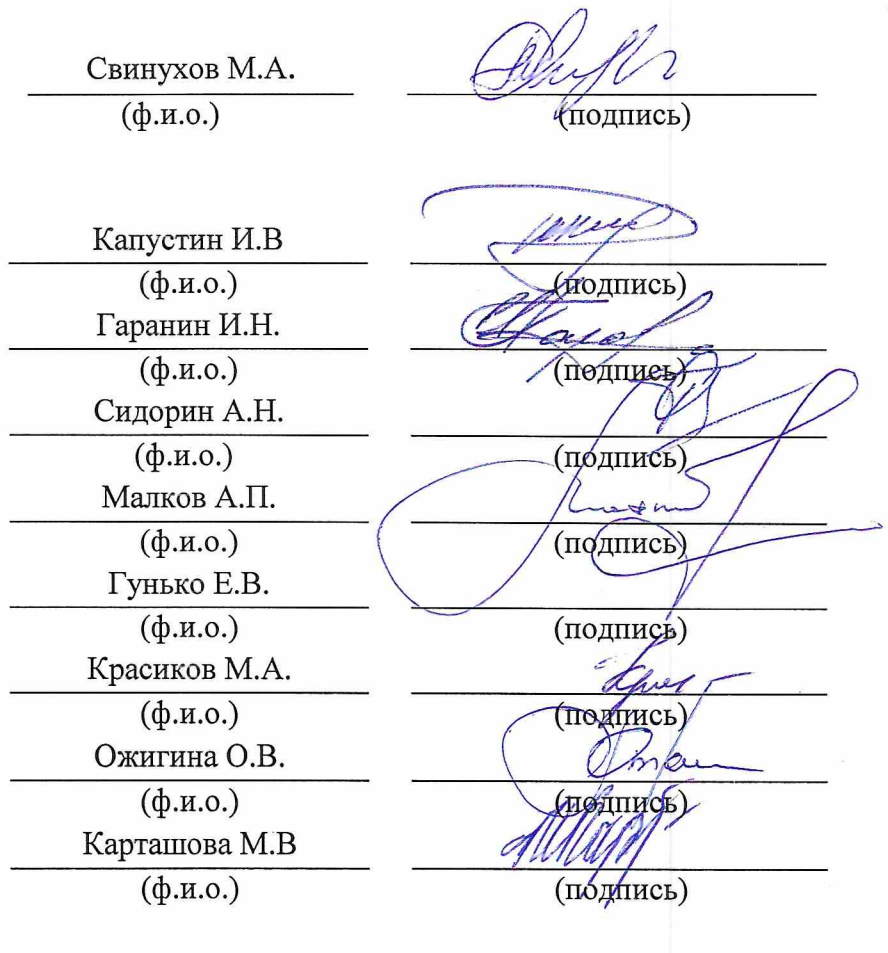 Свинухов М.А.
(ф.и.о.) (подпись)
Капустин И.В
(ф.и.о.) (подпись)
Гаранин И.Н.
(ф.и.о.) (подпись)
Сидорин А.Н.
(ф.и.о.) (подпись)
Малков А.П.
(ф.и.о.) (подпись)
Гунько Е.В.
(ф.и.о.) (подпись)
Красиков М.А.
(ф.и.о.) (подпись)
Ожигина О.В.
(ф.и.о.) (подпись)
Карташова М.В
(ф.и.о.) (подпись)